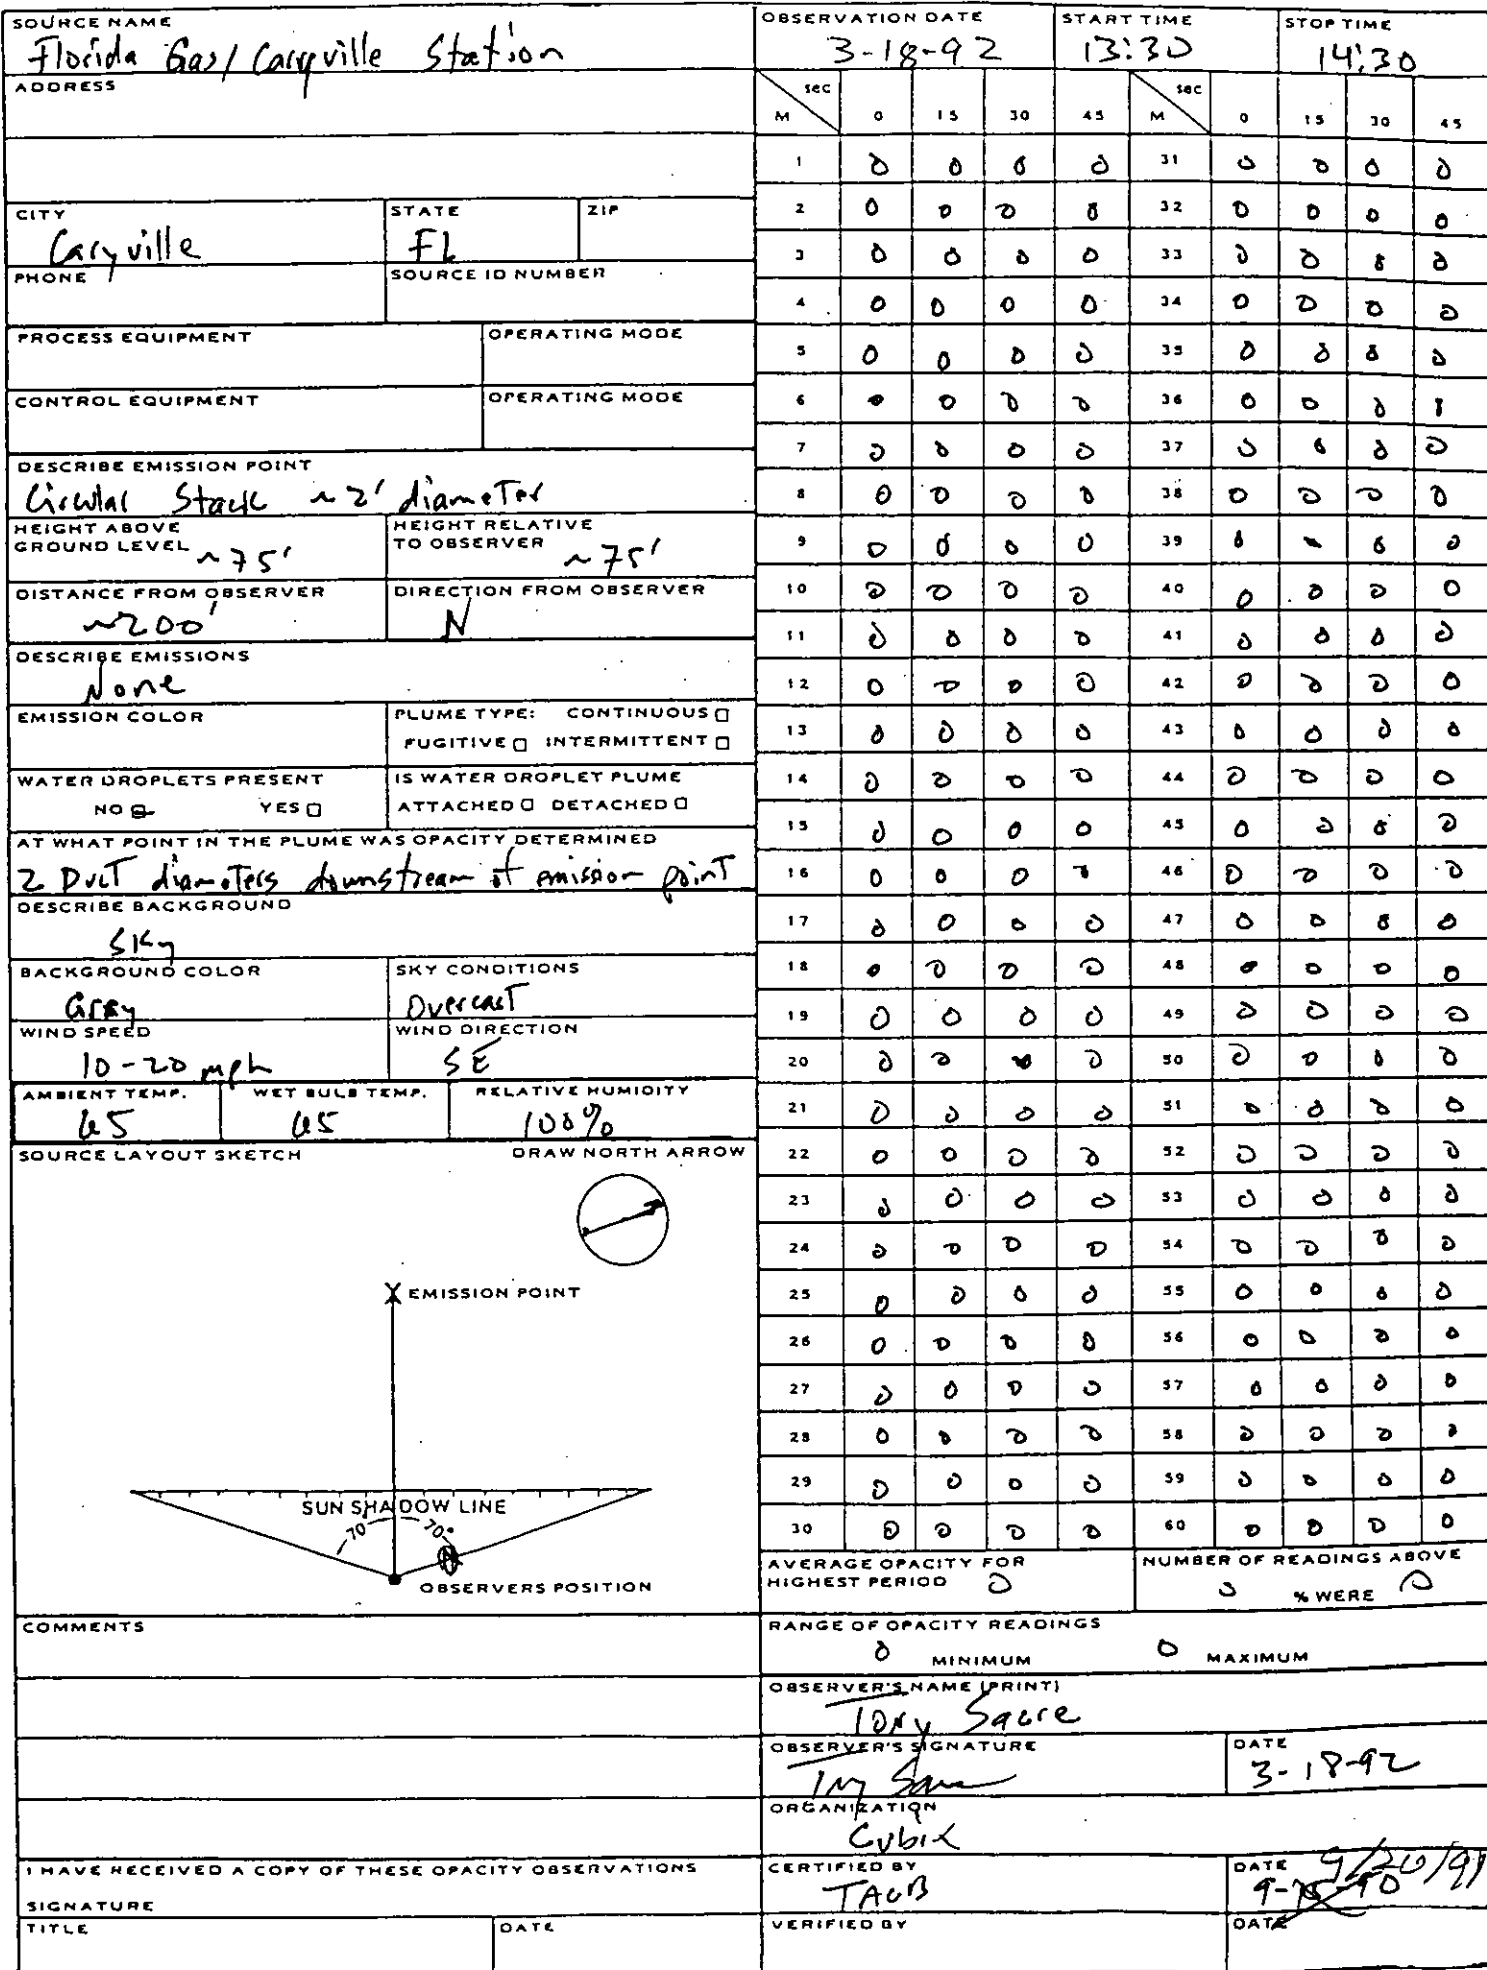 SOURCE NAME
Florida Gas/Caryville Station
ADDRESS
CITY STATE ZIP
Caryville FL
PHONE SOURCE ID NUMBER
PROCESS EQUIPMENT OPERATING MODE
CONTROL EQUIPMENT OPERATING MODE
DESCRIBE EMISSION POINT
Circular Stack ~2' diameter
HEIGHT ABOVE GROUND LEVEL ~75'
HEIGHT RELATIVE TO OBSERVER ~75'
DISTANCE FROM OBSERVER DIRECTION FROM OBSERVER
~200' N
DESCRIBE EMISSIONS
None
EMISSION COLOR PLUME TYPE: CONTINUOUS □
FUGITIVE □ INTERMITTENT □
WATER DROPLETS PRESENT IS WATER DROPLET PLUME
NO □ YES □ ATTACHED □ DETACHED □
AT WHAT POINT IN THE PLUME WAS OPACITY DETERMINED
2 Duct diameters downstream of emission point
DESCRIBE BACKGROUND
Sky
BACKGROUND COLOR SKY CONDITIONS
Gray Overcast
WIND SPEED WIND DIRECTION
10-20 mph SE
AMBIENT TEMP. WET BULB TEMP. RELATIVE HUMIDITY
65 65 100%
SOURCE LAYOUT SKETCH DRAW NORTH ARROW
X EMISSION POINT
SUN SHADOW LINE
70 70°
OBSERVERS POSITION
COMMENTS
I HAVE RECEIVED A COPY OF THESE OPACITY OBSERVATIONS
SIGNATURE
TITLE DATE
OBSERVATION DATE START TIME STOP TIME
3-18-92 13:30 14:30
M sec 0 15 30 45 M sec 0 15 30 45
1 0 0 0 0 31 0 0 0 0
2 0 0 0 0 32 0 0 0 0
3 0 0 0 0 33 0 0 0 0
4 0 0 0 0 34 0 0 0 0
5 0 0 0 0 35 0 0 0 0
6 0 0 0 0 36 0 0 0 0
7 0 0 0 0 37 0 0 0 0
8 0 0 0 0 38 0 0 0 0
9 0 0 0 0 39 0 0 0 0
10 0 0 0 0 40 0 0 0 0
11 0 0 0 0 41 0 0 0 0
12 0 0 0 0 42 0 0 0 0
13 0 0 0 0 43 0 0 0 0
14 0 0 0 0 44 0 0 0 0
15 0 0 0 0 45 0 0 0 0
16 0 0 0 0 46 0 0 0 0
17 0 0 0 0 47 0 0 0 0
18 0 0 0 0 48 0 0 0 0
19 0 0 0 0 49 0 0 0 0
20 0 0 0 0 50 0 0 0 0
21 0 0 0 0 51 0 0 0 0
22 0 0 0 0 52 0 0 0 0
23 0 0 0 0 53 0 0 0 0
24 0 0 0 0 54 0 0 0 0
25 0 0 0 0 55 0 0 0 0
26 0 0 0 0 56 0 0 0 0
27 0 0 0 0 57 0 0 0 0
28 0 0 0 0 58 0 0 0 0
29 0 0 0 0 59 0 0 0 0
30 0 0 0 0 60 0 0 0 0
AVERAGE OPACITY FOR HIGHEST PERIOD 0
NUMBER OF READINGS ABOVE
0 % WERE 0
RANGE OF OPACITY READINGS
0 MINIMUM 0 MAXIMUM
OBSERVER'S NAME (PRINT)
Tony Sacre
OBSERVER'S SIGNATURE DATE
3-18-92
ORGANIZATION
Cubix
CERTIFIED BY DATE 9/20/91
TACB
VERIFIED BY DATE